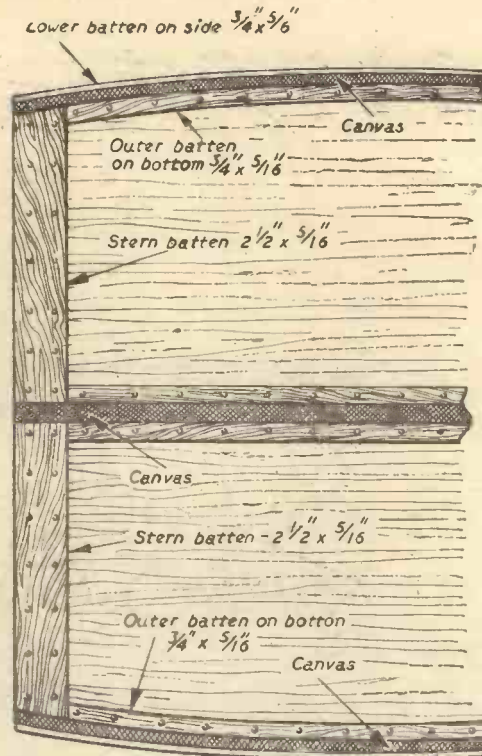 Lower batten on side 3/4" x 5/6"
Canvas
Outer batten
on bottom 3/4" x 5/16"
Stern batten 2 1/2" x 5/16"
Canvas
Stern batten - 2 1/2" x 5/16"
Outer batten on botton
3/4" x 5/16"
Canvas